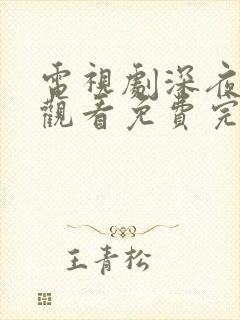 電視劇深夜
觀看免費完
王青松